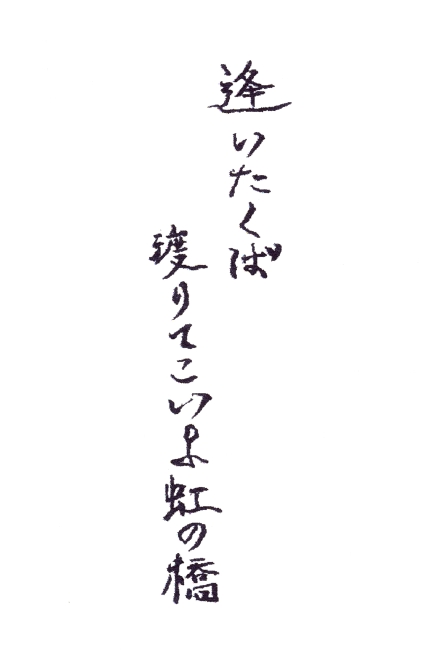 逢いたくば
渡りてこいよ虹の橋